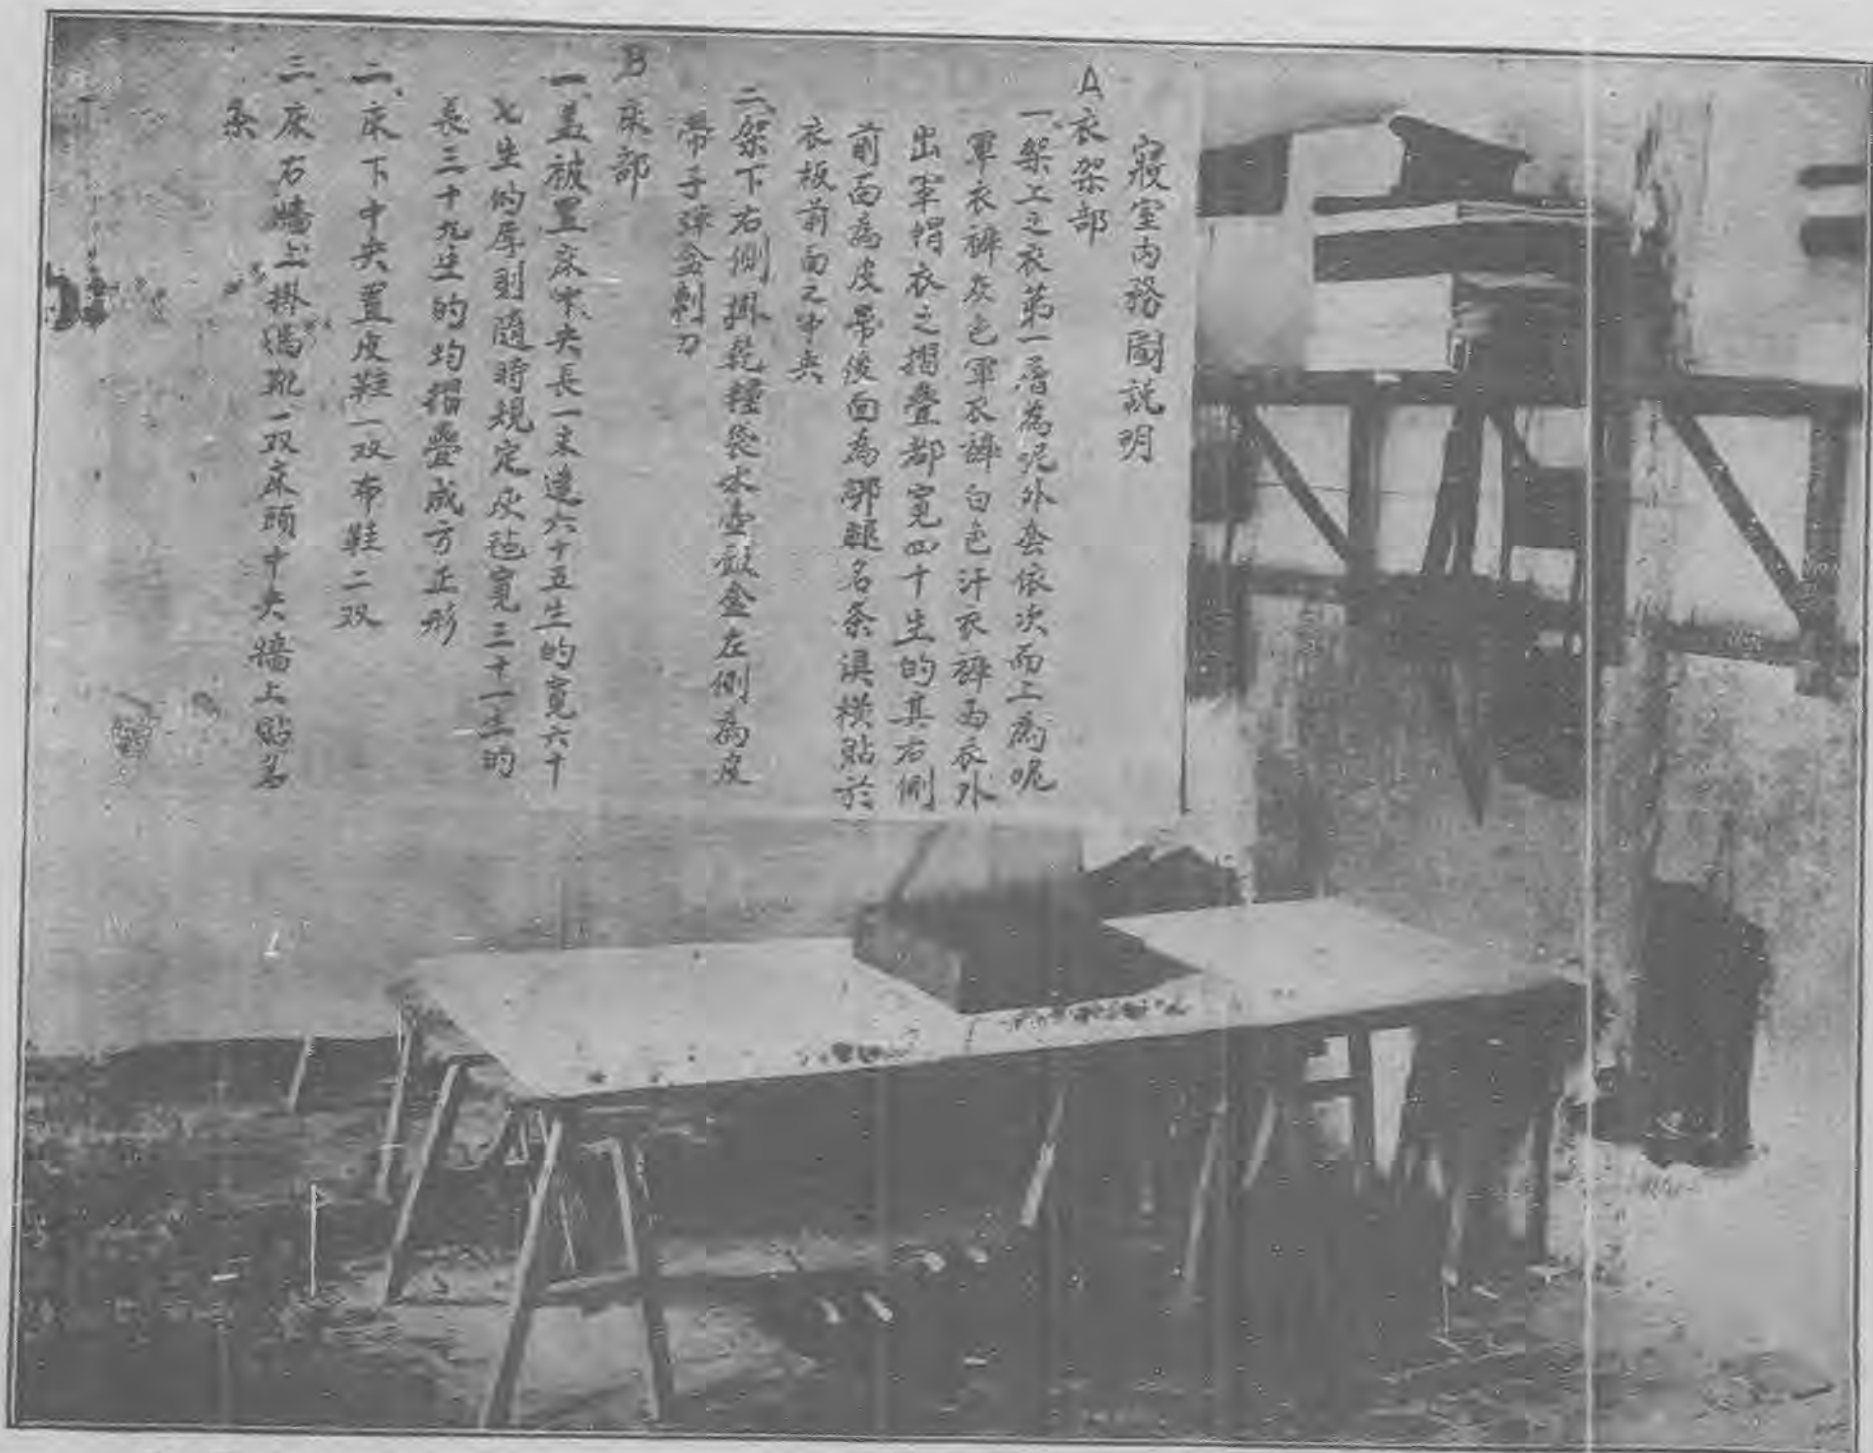 寢室內務圖説明
A衣架部
一、架上之衣第一層為呢外套依次而上為呢
軍衣褲灰色軍衣褲白色汗衣褲雨衣外
出軍帽衣之摺疊都寬四十生的其右側
前面為皮帶後面為綁腿名条須橫貼於
衣板前面之中央
二、架下右側掛乾糧袋水壺飯盒左側為皮
帶子彈盒刺刀
B床部
一、盖被置床中央長一米達六十五生的寬六十
七生的厚則隨時規定灰毡寬三十一生的
長三十九生的均摺疊成方正形
二、床下中央置皮鞋一双布鞋二双
三、床右牆上掛馬靴一双床頭中央牆上貼名
条